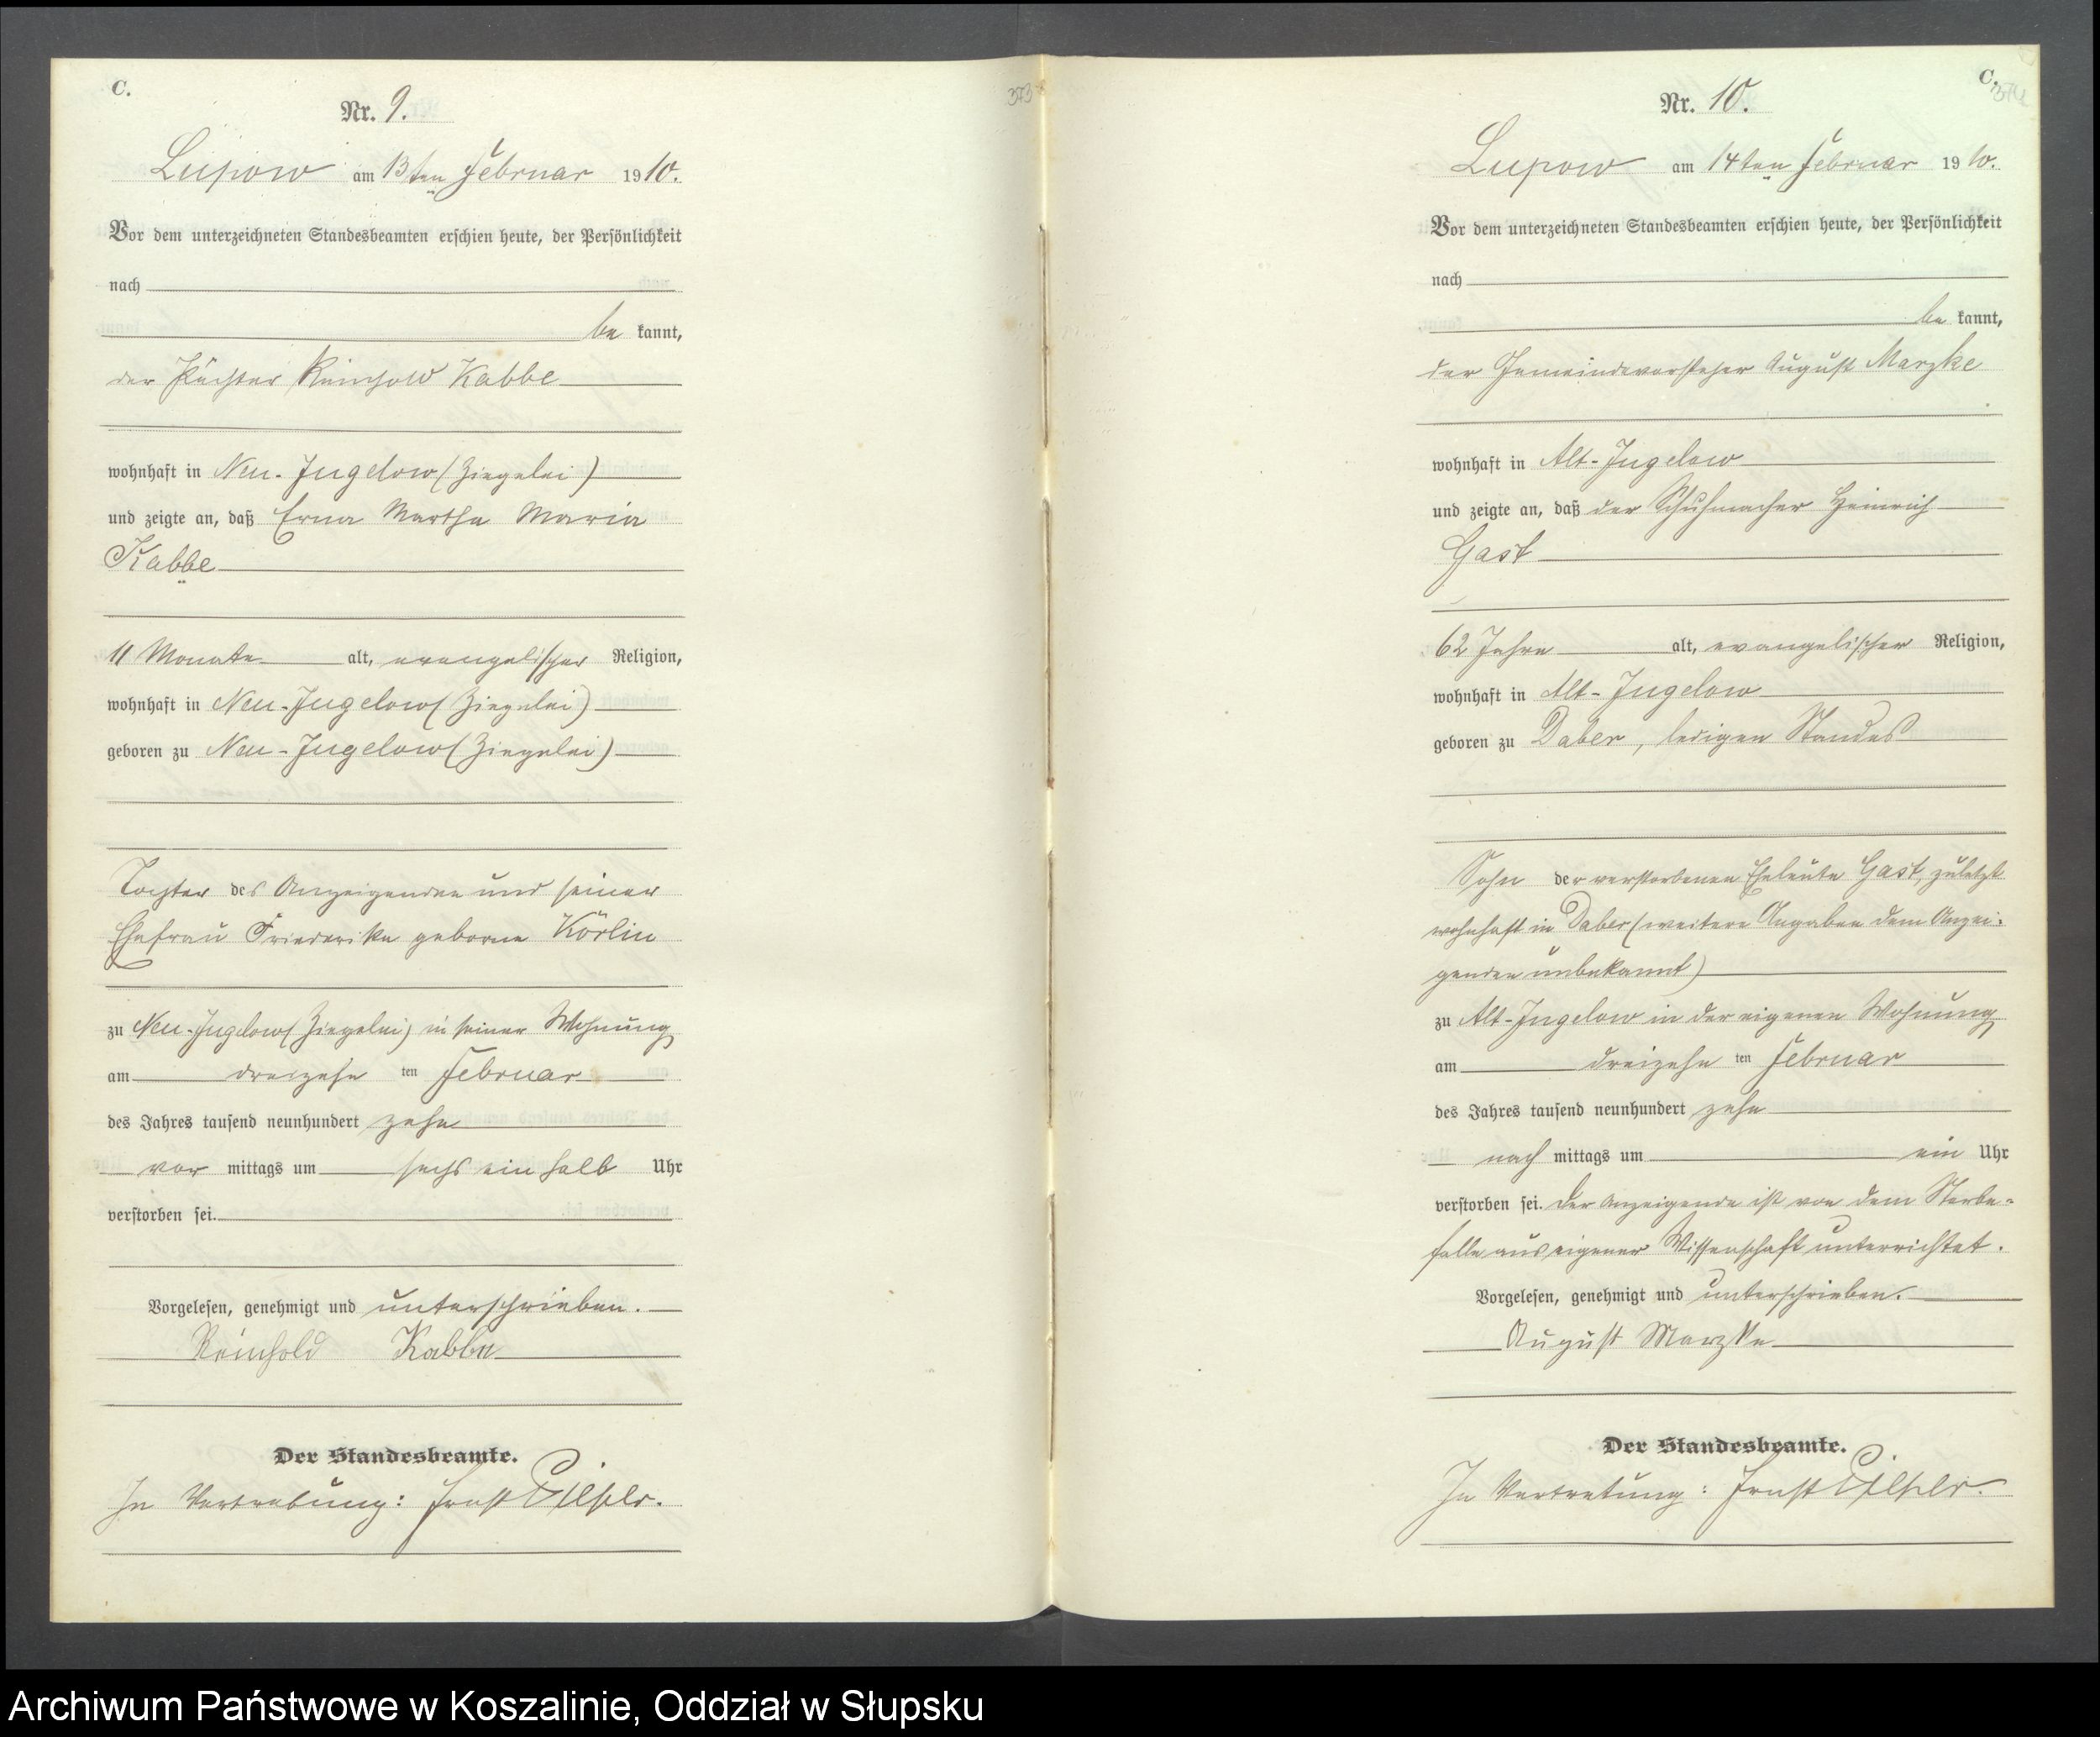 C.
Nr. 9.
Lupow am 13ten Februar 1910.
Vor dem unterzeichneten Standesbeamten erschien heute, der Persönlichkeit
nach
bekannt,
der Pächter Reinhold Kabbe
wohnhaft in Neu-Jugelow (Ziegelei)
und zeigte an, daß Erna Martha Maria
Kabbe
11 Monate alt, evangelischer Religion,
wohnhaft in Neu-Jugelow (Ziegelei)
geboren zu Neu-Jugelow (Ziegelei)
Tochter des Anzeigenden und seiner
Ehefrau Friederike geborne Körlin
zu Neu-Jugelow (Ziegelei) in seiner Wohnung
am dreizehnten Februar
des Jahres tausend neunhundert zehn
vormittags um sechs ein halb Uhr
verstorben sei.
Vorgelesen, genehmigt und unterschrieben.
Reinhold Kabbe
Der Standesbeamte.
In Vertretung: Ernst
373
C.
Nr. 10.
Lupow am 14ten Februar 1910.
Vor dem unterzeichneten Standesbeamten erschien heute, der Persönlichkeit
nach
bekannt,
der Gemeindevorsteher August Marzke
wohnhaft in Alt-Jugelow
und zeigte an, daß der Schuhmacher Heinrich
Gast
62 Jahre alt, evangelischer Religion,
wohnhaft in Alt-Jugelow
geboren zu Daber, ledigen Standes
Sohn der verstorbenen Eheleute Gast, zuletzt
wohnhaft in Daber (weitere Angaben dem Anzei-
genden unbekannt)
zu Alt-Jugelow in der eigenen Wohnung
am dreizehnten Februar
des Jahres tausend neunhundert zehn
nachmittags um ein Uhr
verstorben sei. Der Anzeigende ist von dem Sterbe-
falle aus eigener Wissenschaft unterrichtet.
Vorgelesen, genehmigt und unterschrieben.
August Marzke
Der Standesbeamte.
In Vertretung: Ernst
Archiwum Państwowe w Koszalinie, Oddział w Słupsku